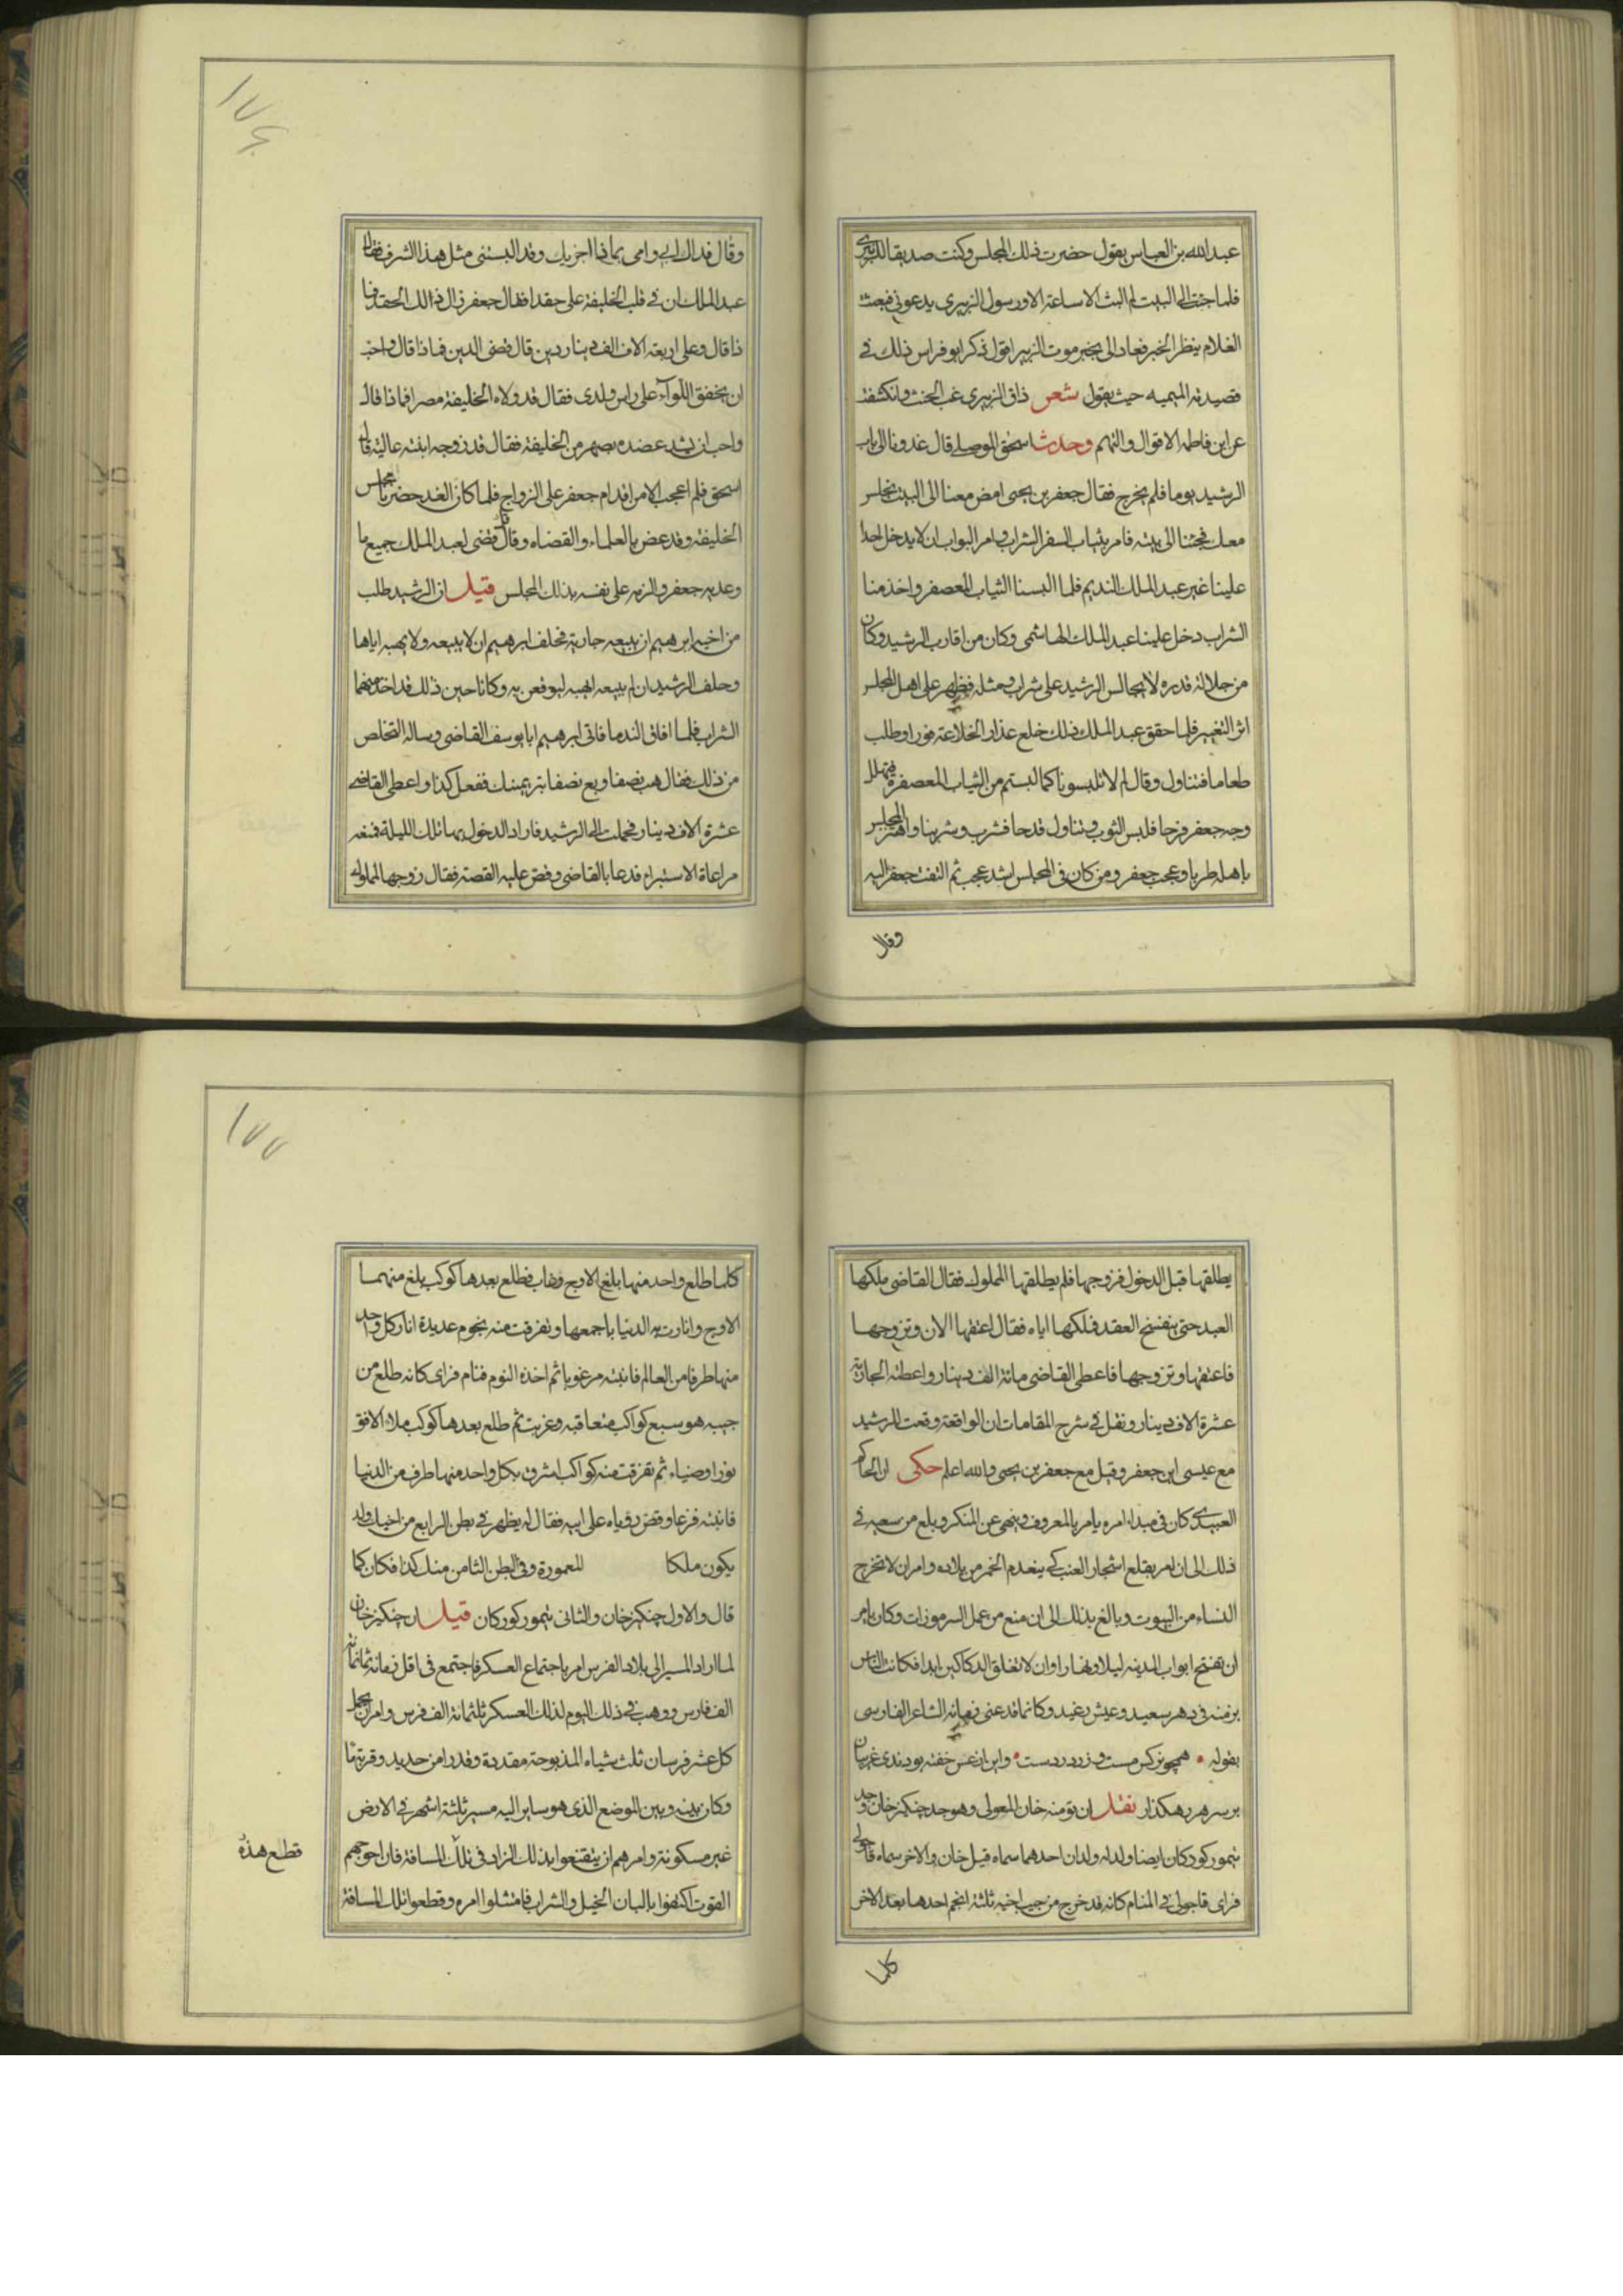 عبدالله بن العباس يقول حضرت ذلك المجلس وكنت صديقا للزبيرى
فلما جئت الى البيت لم البث الا ساعة الا ورسول الزبيرى يدعونى فبعثت
الغلام ينظر الخبر فعاد الى بخبر موت الزبير اقول ذكر ابو فراس ذلك فى
قصيدته الميميه حيث يقول شعر ذاق الزبيرى غب الحنث وانكشفت
عن ابن فاطمة الاقوال والتهم وحدث اسحق الموصلى قال غدونا الى باب
الرشيد يوما فلم يخرج فقال جعفر بن يحيى امض معنا الى البيت نجلس
معك فجئنا الى بيته فامر بثياب السفر الشراب وامر البواب ان لا يدخل احدا
علينا غير عبد الملك النديم فلما البسنا الثياب المعصفر واخذ منا
الشراب دخل علينا عبد الملك الهاشمى وكان من اقارب الرشيد وكان
من جلالة قدره لا يجالس الرشيد على شراب ومثله فظهر على اهل المجلس
اثر التغيير فلما حقق عبد الملك ذلك خلع عذار الخلاعة فورا وطلب
طعاما فتناول وقال لم لا تلبسونا كما لبستم من الثياب المعصفرة فتهلل
وجه جعفر فرحا فلبس الثوب وتناول قدحا فشرب وشربنا واهتز المجلس
باهله طربا وعجب جعفر ومن كان فى المجلس اشد عجب ثم التفت جعفر اليه
وقال
١٧٤
وقال فداك ابى وامى بماذا اجزيك وقد البستنى مثل هذا الشرف فقال
عبد الملك ان فى قلب الخليفة على حقدا فقال جعفر زال ذالك الحقد فما
ذا قال وعلى اربعة الاف الف دينار دين قال قضى الدين فماذا قال واحب
ان يخفق اللوآء على راس ولدى فقال قد ولاه الخليفة مصرا فماذا قال
واحب ان يشد عضده بصهر من الخليفة فقال قد زوجه ابنته عالية قال
اسحق فلم اعجب الامر اقدام جعفر على الزواج فلما كان الغد حضر نا مجلس
الخليفة وقد غص بالعلماء والقضاة وقال قد قضى لعبد الملك جميع ما
وعد به جعفر والزمه على نفسه بذلك المجلس قيل ان الرشيد طلب
من اخيه ابرهيم ان يبيعه جارية فحلف ابرهيم ان لا يبيعه ولا يهبه اياها
وحلف الرشيد ان لم يبيعه او يهبه ليوقعن به وكانا حين ذلك قد اخذ منهما
الشراب فلما افاق الندما فاتى ابرهيم ابا يوسف القاضى وساله التخلص
من ذلك فقال هب نصفا وبع نصفا تبر يمينك ففعل كذا واعطى القاضى
عشرة الاف دينار فحملت الى الرشيد فاراد الدخول بها تلك الليلة فمنعه
مراعاة الاستبراء فدعا بالقاضى وقص عليه القصة فقال زوجها المملوك
يطلقها قبل الدخول فزوجها فلم يطلقها المملوك فقال القاضى ملكها
العبد حتى ينفسخ العقد فملكها اياه فقال اعتقها الان وتزوجها
فاعتقها وتزوجها فاعطى القاضى مائة الف دينار واعطته الجارية
عشرة الاف دينار ونقل فى شرح المقامات ان الواقعة وقعت للرشيد
مع عيسى ابن جعفر وقيل مع جعفر بن يحيى والله اعلم حكى ان الحاكم
العبيدى كان فى مبداء امره يامر بالمعروف وينهى عن المنكر وبلغ من سعيه فى
ذلك الى ان امر بقلع اشجار العنب كى ينعدم الخمر من بلاده وامر ان لا تخرج
النساء من البيوت وبالغ بذلك الى ان منع من عمل السرموزات وكان يامر
ان تفتح ابواب المدينه ليلا ونهارا وان لا تغلق الدكاكين ابدا فكانت الناس
بزمنه فى دهر سعيد وعيش رغيد وكانما قد عنى زمانه الشاعر الفارسى
بقوله همچو نركس مست وزر در دست واين از غش خفته بودندى غريبان
بر سر هر رهكذار نقل ان تومنه خان المغولى وهو جد چنكيز خان وجد
تيمور كوركان ايضا ولد له ولدان احدهما سماه قبل خان والاخر سماه قاجولى
فراى قاجولى فى المنام كانه قد خرج من جيب اخيه ثلثة انجم احدها بعد الاخر
كلما
١٧٧
كلما طلع واحد منها بلغ الاوج وغاب فطلع بعدها كوكب بلغ منهما
الاوج وانارت به الدنيا باجمعها وتفرقت منه نجوم عديدة انار كل واحد
منها طرفا من العالم فانتبه مرعوبا ثم اخذه النوم فنام فراى كانه طلع من
جيبه هو سبع كواكب متعاقبه وغربت ثم طلع بعدها كوكب ملاء الافق
نورا وضياء ثم تفرقت منه كواكب اشرق بكل واحد منها طرف من الدنيا
فانتبه فزعا وقص رؤياه على ابيه فقال له يظهر فى بطن الرابع من اخيك ولد
يكون ملكا المعمورة وفى البطن الثامن منك كذا فكان كما
قال والاول چنكيز خان والثانى تيمور كوركان قيل ان چنكيز خان
لما اراد المسير الى بلاد الفرس امر باجتماع العسكر فاجتمع فى اقل زمانه ثمانمائة
الف فارس ووهب فى ذلك اليوم لذلك العسكر ثلثمائة الف فرس وامر ان يحمل
كل عشر فرسان ثلث شياه المذبوحة مقددة وقدرا من حديد وقربة ما
وكان بينه وبين الموضع الذى هو ساير اليه مسير ثلثة اشهر فى الارض
غير مسكونة وامرهم ان يتقنعوا بذلك الزاد فى تلك المسافة فان احوجهم
القوت اكتفوا بالبان الخيل والشراب فامتثلوا امره وقطعوا تلك المسافة
قطع هذه